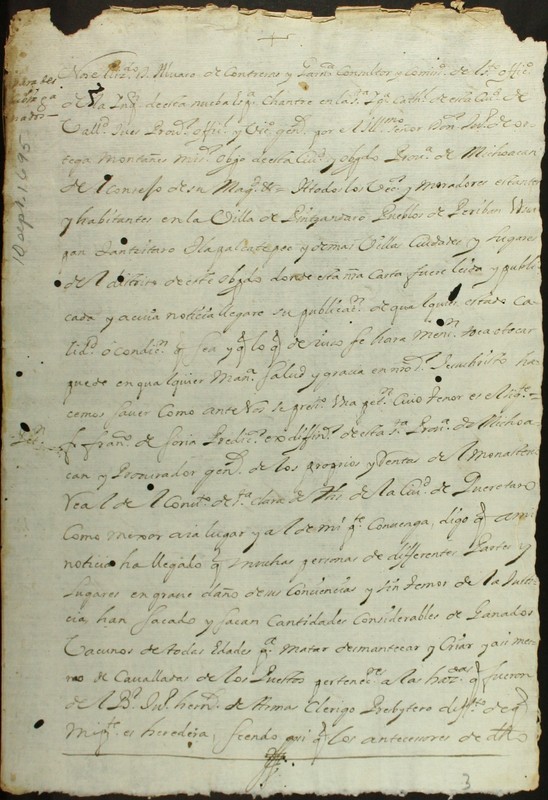 Nos el Lizdo. D. Alvaro de Contreras y Consultor y Comiso. del Sto. offio.
de la Inqn. de esta nueba espa. Chantre en la Sta. Iga. Cathl. de esta Ciud. de
Valld. Juez Provr. offil. y Vico. genl. por el Illmo. Señor Domr. Jun. de or-
tega Montañes mi sr. Obpo de esta Ciud. y obpdo Prova. de Michoacan
del Consejo de su Magd. &a = A todos los Veos. y Moradores estantes
y habitantes en la Villa de Pintzandaro Pueblos de Periban Urua-
pan tantzitaro Tlapalcatepec y demas Villas Ciudades y lugares
del distrito de este obpdo donde esta nra Carta fuere leida y publi-
cada y a cuia noticia llegare su publicaon. de qualquier estado Ca-
lidd. ó condicion. q sea y q lo q de iuso se hara menn. toca o tocar
puede en qualquier mana. Salud y gracia en nro. Sr. Jesuchristo ha-
cemos saver Como ante Nos se preto. Una petn. Cuio tenor es el sigte. =
Petn.
fr. frano. de Soria Predicr. ex diffinr. de esta Sta. Prova. de Michoa-
can y Procurador genl. de los proprios y Rentas del monasterio
Real del Convto. de Sta. clara de Jhs de la Ciud. de Queretaro
Como mejor aia lugar y al de mi pte. Convenga, digo q a mi
noticia ha llegado q muchas personas de differentes Partes y
Lugares en grave daño de sus Conciencias y sin temor de la Justi-
cia, han Sacado y sacan Cantidades Considerables de Ganados
Vacunos de todas Edades pa. Matar desmantecar y Criar y asi mes-
mo de Cavalladas de los Puestos pertenecies. a las hazdas q fueron
del Br. Jun. hernz. de Armas Clerigo Presbytero difto. de q
Mi pte. es heredera, siendo asi q los antecesores de dho
10 sept. 1695
3